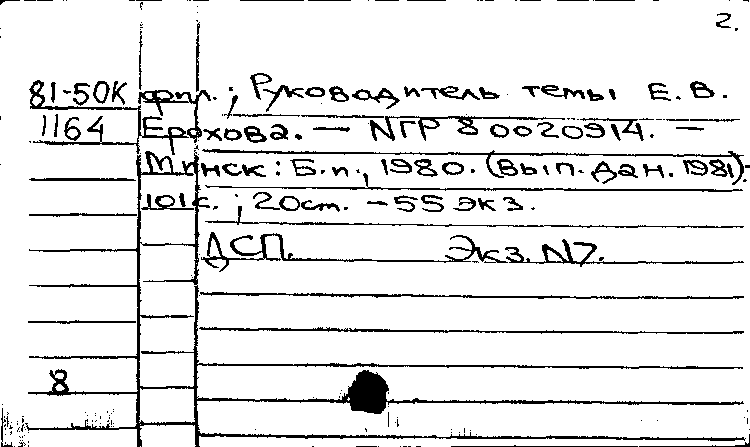 2.
81-50К фил.; Руководитель темы Е.В.
1164 Ерохова. — NГР 80020914. —
Минск: Б.и., 1980. (Вып.дан. 1981).-
101с.; 20см. - 55 экз.
ДСП. Экз. N7.
8